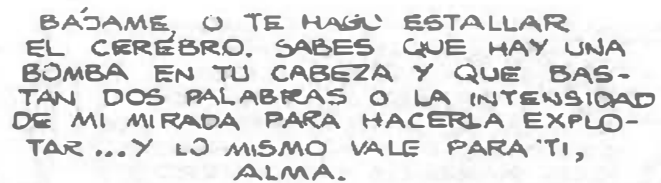 BÁJAME, O TE HAGO ESTALLAR
EL CEREBRO. SABES QUE HAY UNA
BOMBA EN TU CABEZA Y QUE BAS-
TAN DOS PALABRAS O LA INTENSIDAD
DE MI MIRADA PARA HACERLA EXPLO-
TAR...Y LO MISMO VALE PARA TI,
ALMA.